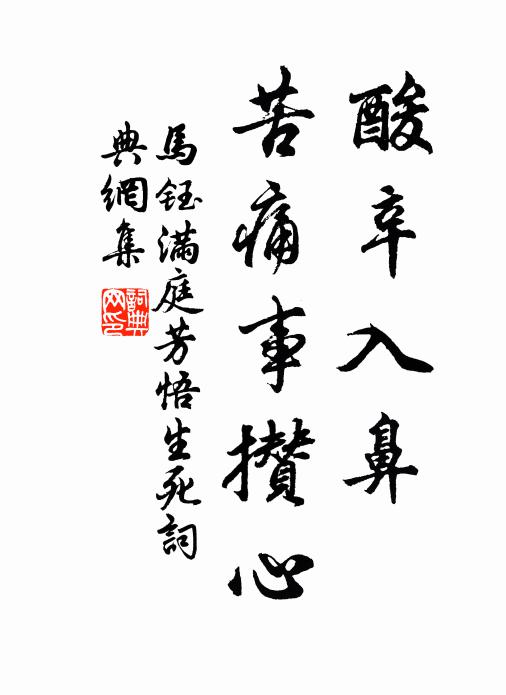 酸辛入鼻
苦痛事攢心
馬鈺滿庭芳悟生死詞
典網集
詞典網印